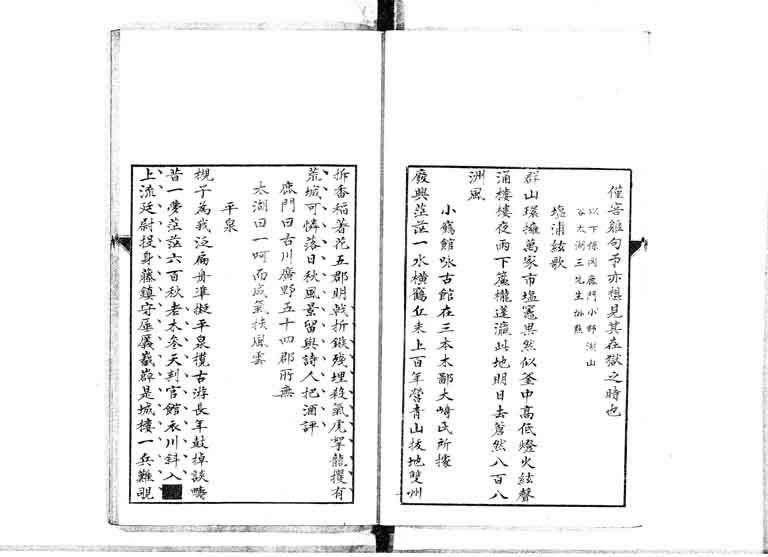 催害雖句予亦想見其在獄之時也
以下係岡鹿門小野湖山
谷太湖三先生批點
塩浦絃歌
群山環擁萬家市塩竈果然似釜中高低燈火絃聲
涌樓樓夜雨下簾櫳逢瀛此地明日去蒼然八百八
洲風
小鶴館咏古館在三本木鄙大崎氏所據
廢興茫茫一水橫鶴仫來上百年營青山拔地雙州
折香稻著花五郡明戟折鏃殘埋殺氣虎拏龍攫有
荒城可憐落日秋風景留與詩人把酒評
鹿門曰古川廣野五十四郡所無
太湖曰一呵而成氣挾風雲
平泉
槻子為我泛扁舟準擬平泉攬古游長年鼓掉談疇
昔一夢茫茫六百秋老木參天判官館衣川斜入
上流廷尉捉身藤鎮守壓羼巖嶭是城樓一兵難覘